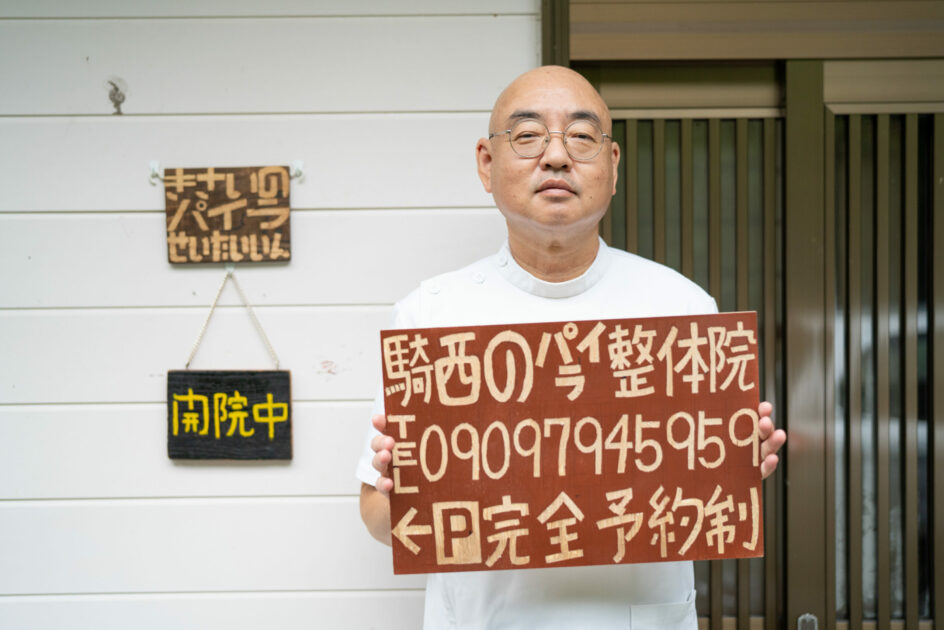 きさいの
パイラ
せいたいいん
開院中
騎西のパイラ整体院
TEL09097945959
←P完全予約制